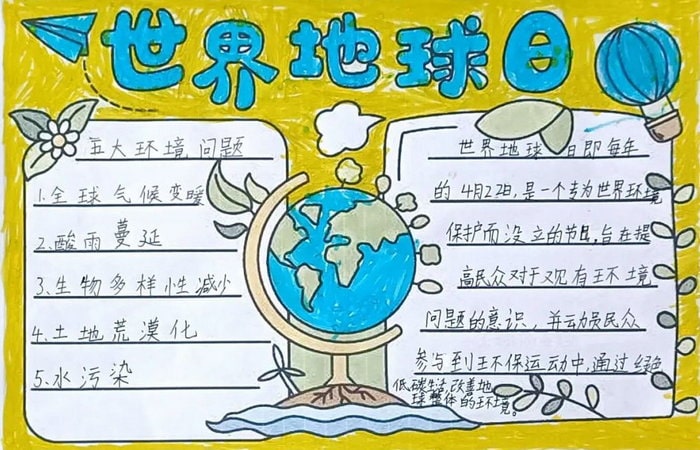 世界地球日
五大环境问题
1.全球气候变暖
2.酸雨蔓延
3.生物多样性减少
4.土地荒漠化
5.水污染
世界地球日即每年
的4月22日,是一个专为世界环境
保护而设立的节日,旨在提
高民众对于现有环境
问题的意识,并动员民众
参与到环保运动中,通过绿色
低碳生活,改善地
球整体的环境。